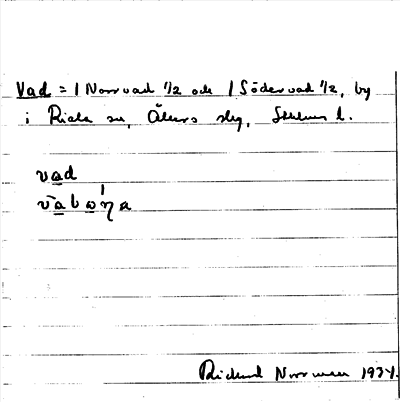 Vad = 1 Norrvad 1/2 och 1 Södervad 1/2, by
i Riala sn, Åkers skg, Sthlms l.
vad
va boŋa
Rickard 1934.